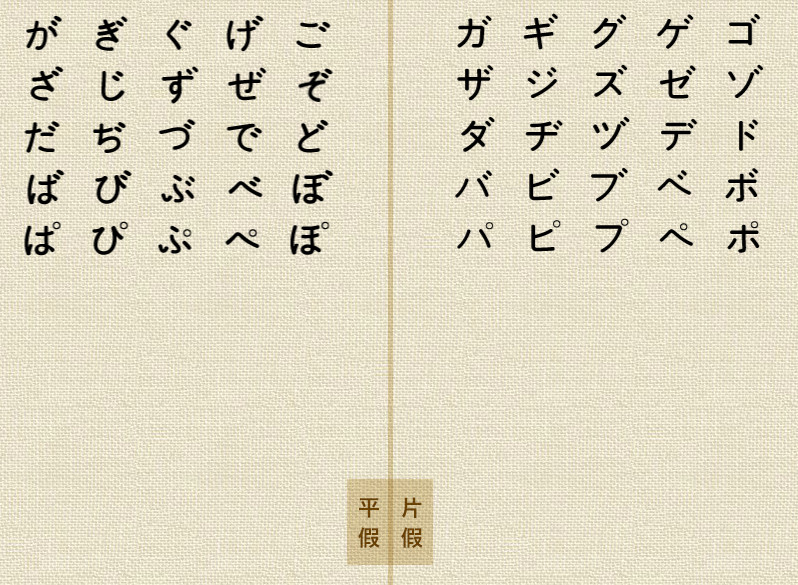 が ぎ ぐ げ ご
ざ じ ず ぜ ぞ
だ ぢ づ で ど
ば び ぶ べ ぼ
ぱ ぴ ぷ ぺ ぽ
ガ ギ グ ゲ ゴ
ザ ジ ズ ゼ ゾ
ダ ヂ ヅ デ ド
バ ビ ブ ベ ボ
パ ピ プ ペ ポ
平假
片假